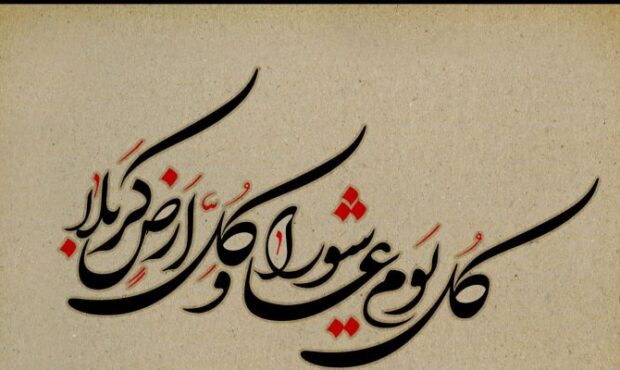 كُل يَوم عاشورا وَ كُلِّ اَرَضٍ كَربَلا